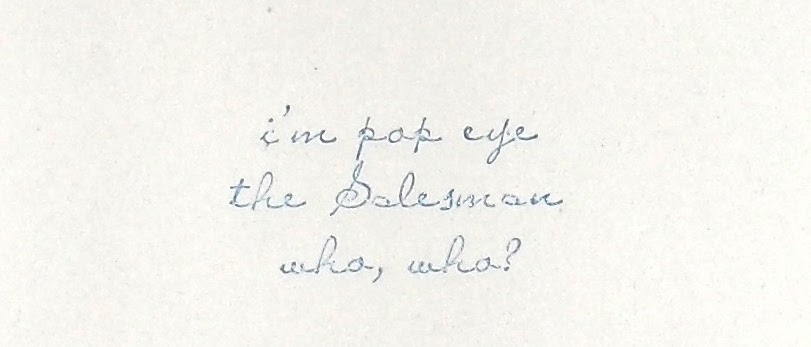 i'm pop eye
the Salesman
who, who?